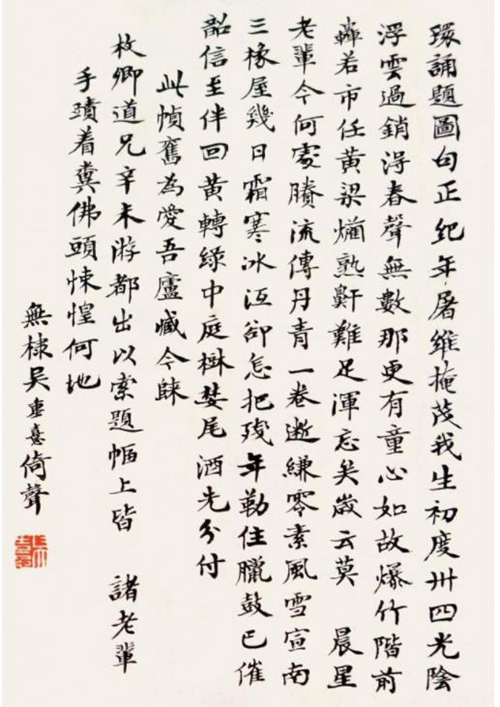 環誦題圖句正紀年屠維掩茂我生初度卅四光陰
浮雲過銷淂春聲無數那更有童心如故爆竹階前
轟若市任黃粱爛熟鼾難足渾忘矣歲云莫 晨星
老輩今何處賸流傳丹青一卷逝縑零素風雪宣南
三椽屋幾日霜寒冰沍卻怎把殘年勒住臘鼓已催
韶信至伴回黃轉綠中庭樹婪尾酒先分付
此幀舊為愛吾廬臧今歸
枚卿道兄辛未游都出以索題幅上皆 諸老輩
手蹟着糞佛頭悚惶何地
無棣吳重憙倚聲